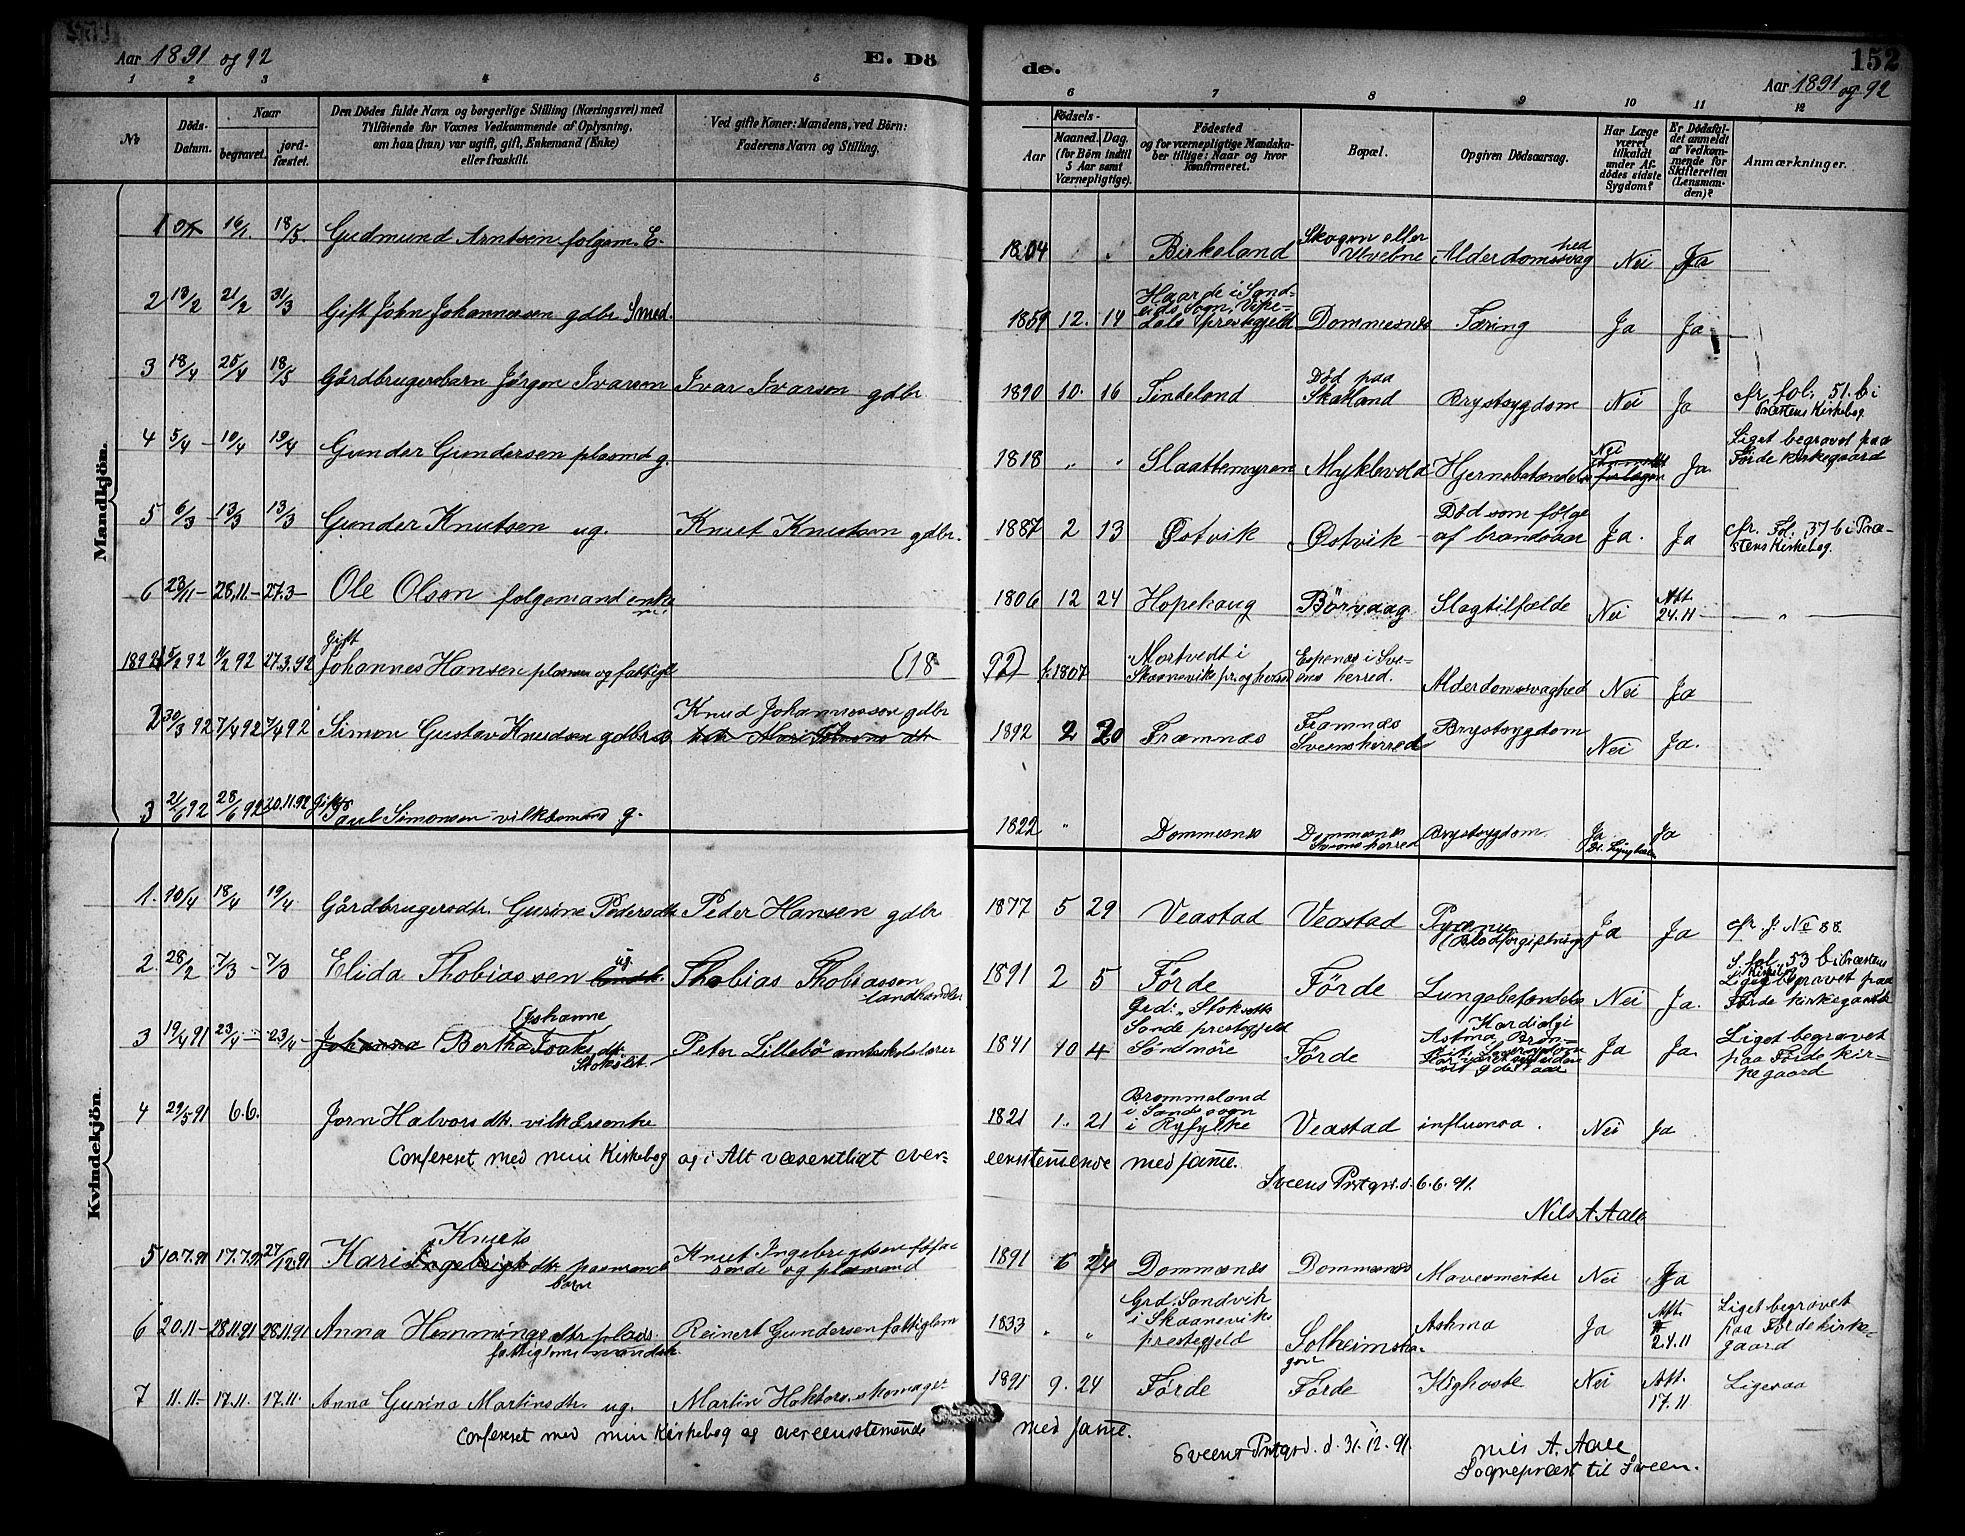 Aar 1891 og 92
E. Dö
de.
152
Aar 1891 og 92
1 2 3 4 5 6 7 8 9 10 11 12
No
Döds-Datum.
Naar
begravet.
jord-fæstet.
Den Dödes fulde Navn og borgerlige Stilling (Næringsvei) med
Tilföiende for Voxnes Vedkommende af Oplysning,
om han (hun) var ugift, gift, Enkemand (Enke)
eller fraskilt.
Ved gifte Koner: Mandens, ved Börn:
Faderens Navn og Stilling.
Födsels-
Aar
Maaned. Dag.
(for Börn indtil
5 Aar samt
Værnepligtige).
Födested
og for værnepligtige Mandska-
ber tillige: Naar og hvor
konfirmeret.
Bopæl.
Opgiven Dödsaarsag.
Har Læge
været
tilkaldt
under Af-
dödes sidste
Sygdom?
Er Dödsfal-
det anmeldt
af Vedkom-
mende for
Skifteretten
(Lensman-
den)?
Anmærkninger.
Mandkjön.
1 16/1. 18/5. Gudmund Arntsen folgem. E. 1804 Birkeland Skogen eller Alderdomssvaghed Nei Ja
2 13/2 21/2 31/3 Gift John Johannesen gdbr. Smed. 1859 12. 14 Haarde i Sand-
eids Sogn, Vike-
dals prestegjeld Dommesnes Tæring Ja Ja
3 18/4 25/4 18/5 Gårdbrugersbarn Jörgen Ivarsen Ivar Ivarsen gdbr. 1890 10. 16 Tindeland Död paa
Skatland Brystsygdom Nei Ja cfr. fol. 51. b i
Præstens Kirkebog.
4 5/4 - 10/4 19/4 Gunder Gundersen plasmd g. 1818 " " Slaattemyren Myklevold Hjernebetændelse Nei Ja Liget begravet paa
Förde kirkegaard
5 6/3 - 13/3 13/3 Gunder Knutsen ug. Knut Knutsen gdbr. 1887 2 13 Östvik Östvik Död som fölge
af brandsaar Ja. Ja cfr. Fol. 37 b i Præ-
stens Kirkebog.
6 23/11 - 28.11 - 27.3 - Ole Olsen folgemand enkem. 1806 12 24 Hopehaug Börsvaag Slagtilfælde Nei Att.
24.11 - "
1892 1 5/2 92 11/2 92 27.3.92 Gift
Johannes Hansen plasm og fattigl (18 92) 1807 Mortvedt i
Skaanevik pr. og herred Espenes i Sve-
ens herred. Alderdomssvaghed Nei Ja
2 30/3 92 7/4 92 7/4 92 Simon Gustav Knudsen gdbrs Knud Johannesson gdbr 1892 2 20 Framnæs Framnæs
Sveensherred Brystsygdom Nei Ja.
3 21/6 92 28/6 92 20.11.92 Gift
Paul Simonsen vilkåsmand g. 1822 " Dommesnes Dommesnes
Sveens herred Brystsygdom. Ja Ja
Kvindekjön.
1. 10/4 18/4 19/4 Gårdbrugersdtr. Gurine Pedersdtr Peder Hansen gdbr 1877 5 29 Veastad Veastad Pyæmu
(Blodforgiftning) Ja Ja cfr. J. No 88.
2. 28/2 7/3 - 7/3 Elida Thobiassen ug. Thobias Thobiassen
landhandler 1891 2 5 Förde Förde Lungebetændelse Nei Ja. S. fol. 53 b i Præstens
Kirkebog
Liget begravet paa
Förde kirkegaard
3 19/4 91 23/4 - 23/4 - Johanna Johanne
Bertha Isaksdtr.
Stokslet. Peter Lillebö omskolelærer 1841 10 4 Grd: Stoksette
Sande prestegjeld
Söndmöre Förde Kardialgi
Astma Bron- Ja Ja Liget begravet
paa Förde kir-
kegaard
4 29/5 91 6.6. Jorn Halvorsdtr. vilkårsenke 1821 1. 21 Brommeland
i Sands sogn
i Ryfylke Veastad influensa. Nei Ja
Confereret med min Kirkebog og i Alt væsentligt over-
eenstemmende med samme.
Sveens Prstgrd. d. 6.6.91.
Nils A. Aall
5 10.7.91 17.7.91 27/12 91 Kari Knuts
Ingebrigtsdtr. plasmands
barn Knut Ingebrigtsen
og plasmand 1891 6 24 Dommesnes Dommesnes Mavesmerter Nei Ja
6 20.11 - 28.11.91 28.11.91 Anna Hemmingsdtr plads.
fattiglems Reinert Gundersen fattiglem 1833 " " Grd. Sandvik
i Skaanevik
prestegjeld Solheimsha-
gen Asthma Ja Att.
24.11 Liget begravet
paa Förde kirke-
gaard
7 11.11 - 17.11. 17.11. Anna Gurina Martinsdtr. ug. Martin Haktors. skomager 1891 9. 24 Förde Förde Kighoste Nei Att.
17.11 Ligesaa
Confereret med min Kirkebog og overeenstemmende
med samme.
Sveens Prstgrd. d. 31.12.91.
Nils A. Aall
Sognepræst til Sveen.